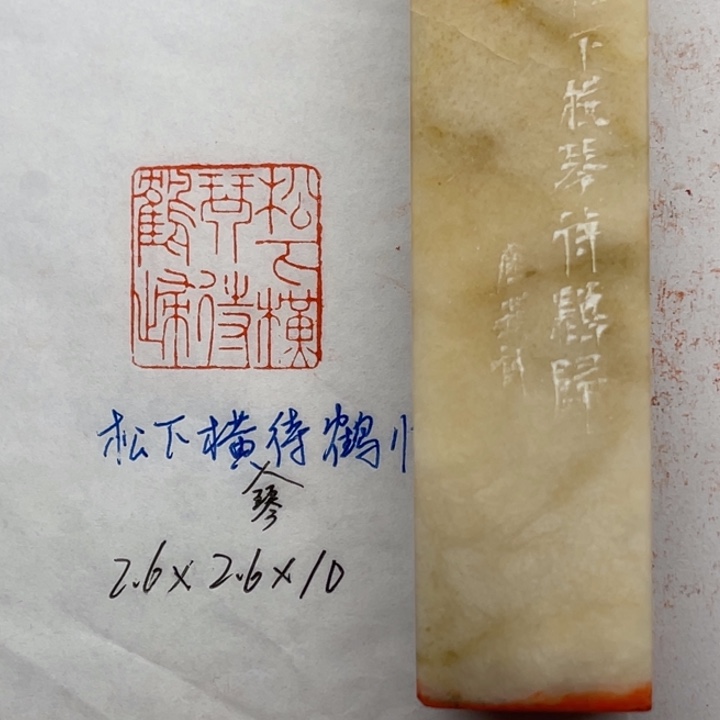 松下横
琴待
鶴歸
松下横待鹤归
琴
2.6×2.6×10
下横琴待鶴歸